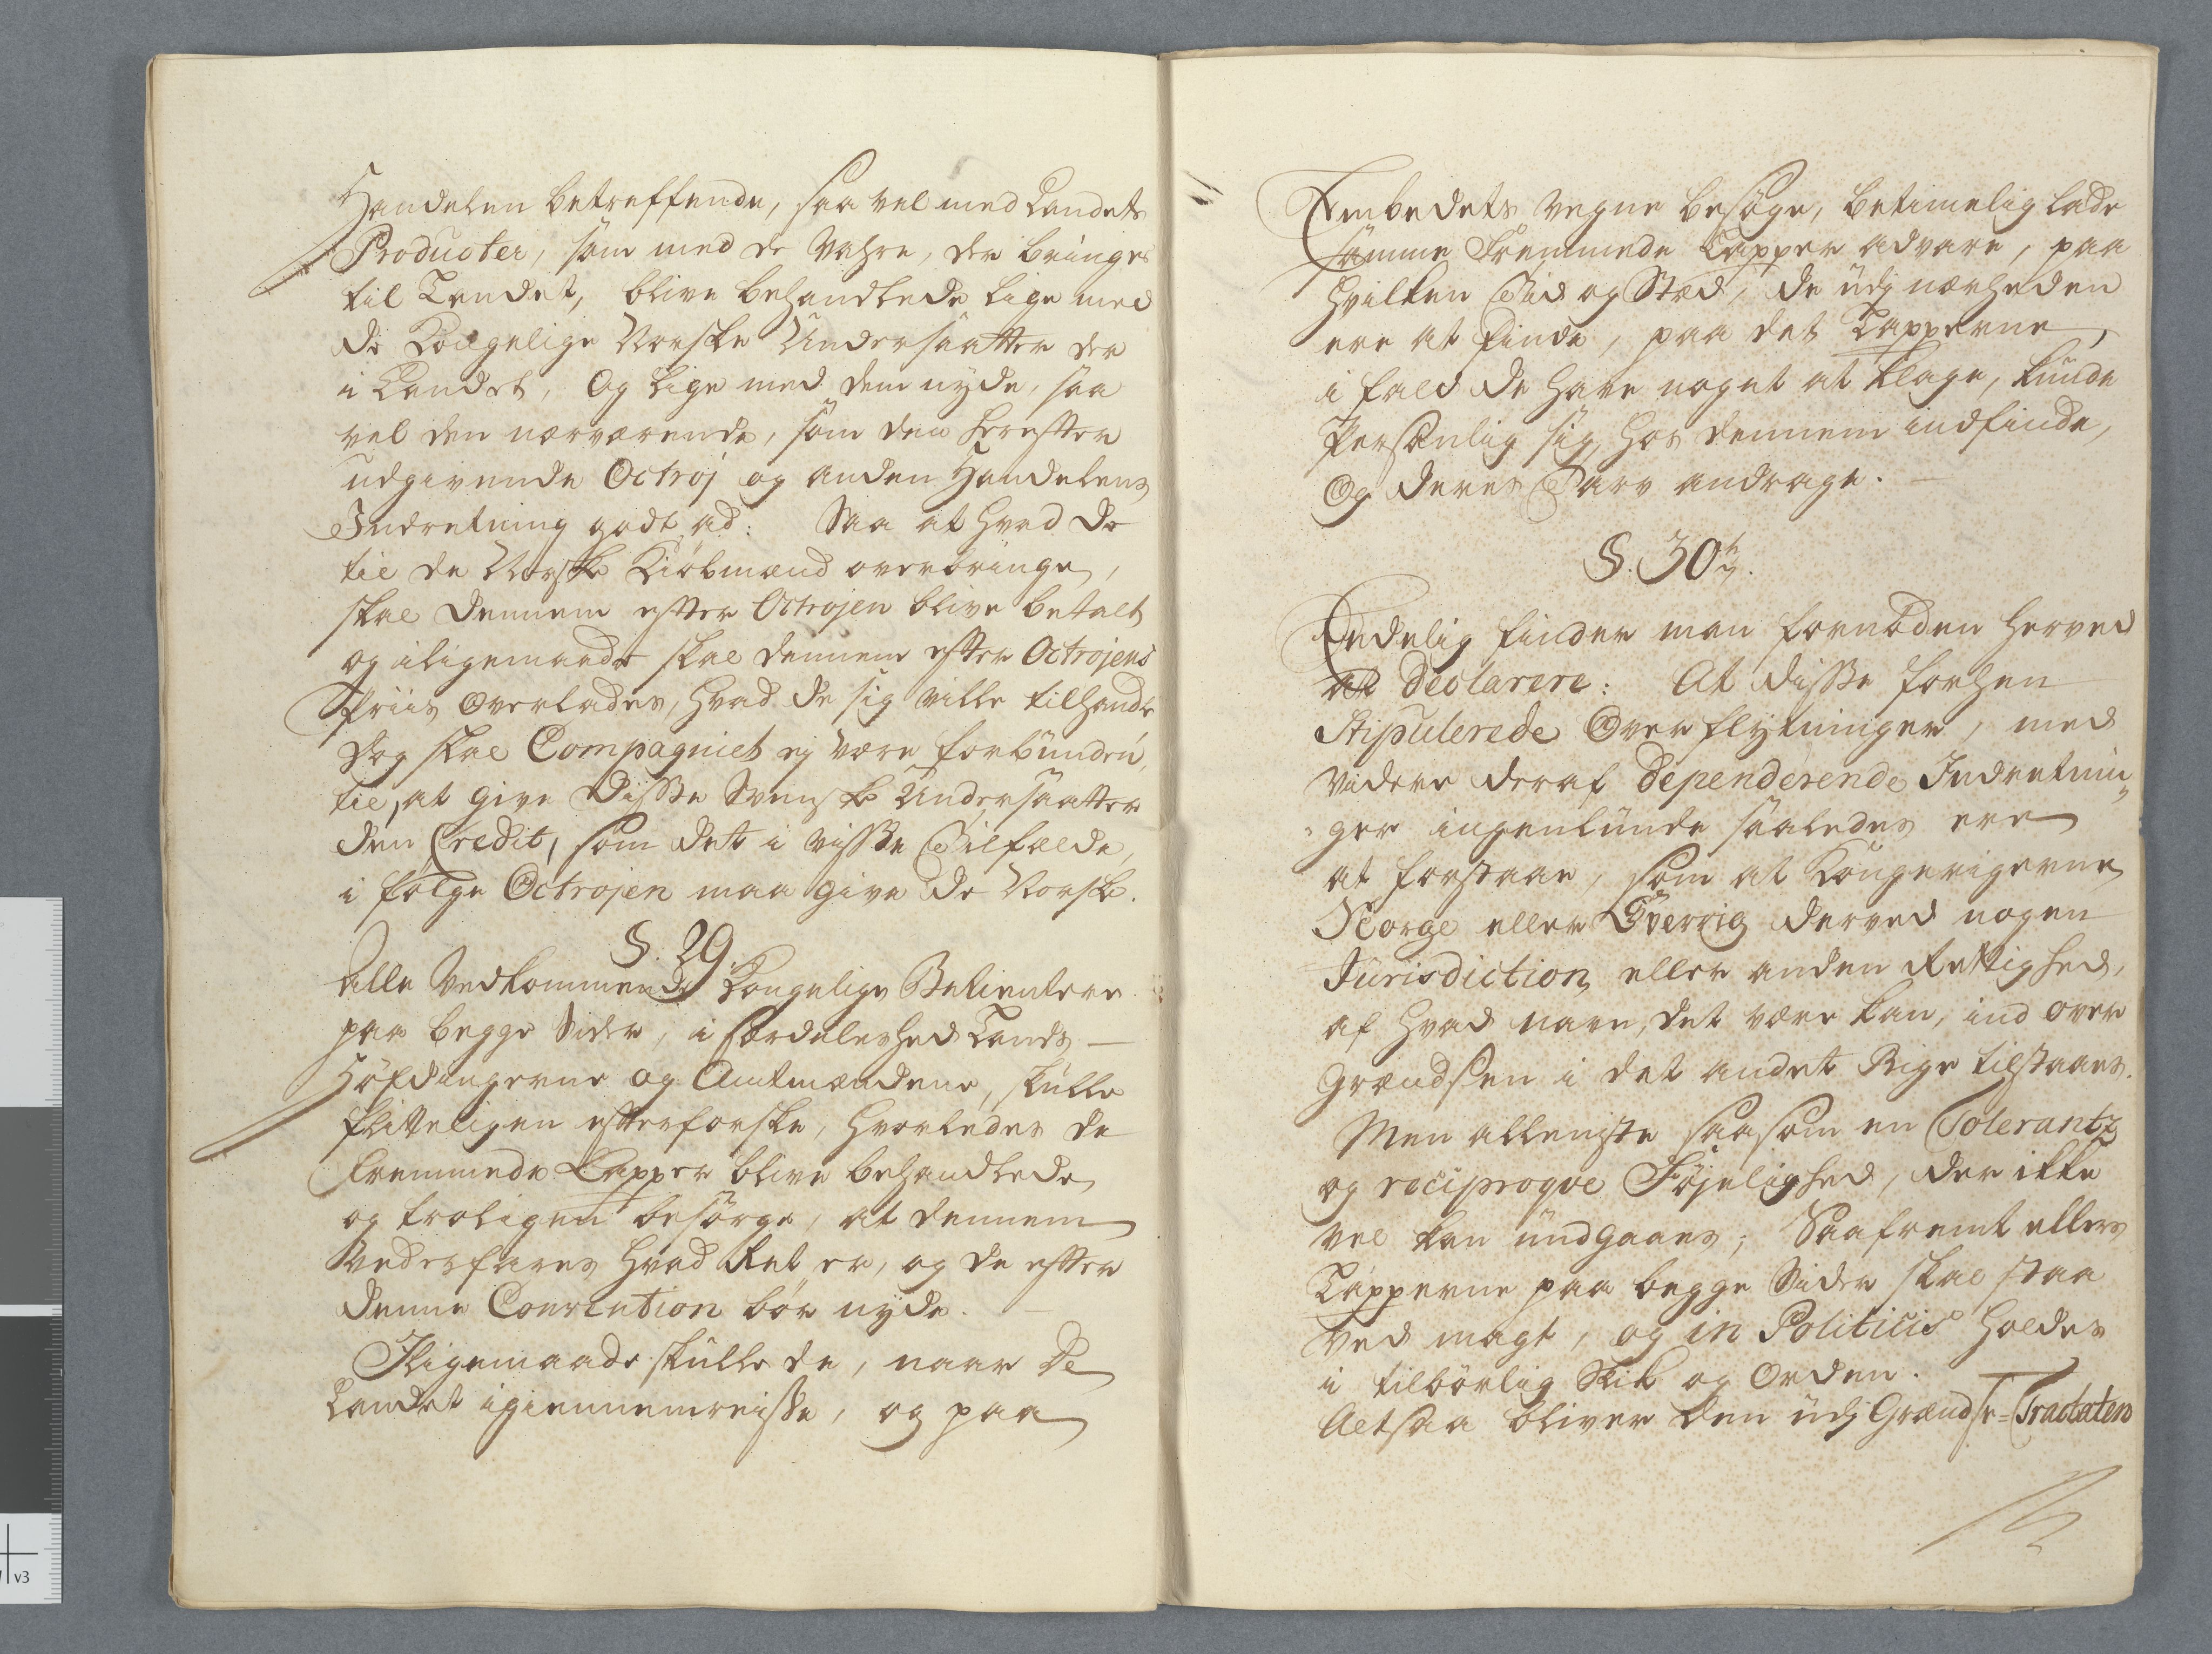 Handelen betreffende, saa vel med Landets
Producter, som med de Vahre, der bringes
til Landet, blive behandlede lige med
de Kongelige Norske Undersaatter der
i Landet, Og lige med dem nyde, saa
vel den nærværende, som den herefter
udgivende Octroj og anden Handelens
Indretning godt ad: Saa at hvad de
til de Norske Kiöbmænd overbringe,
skal dennem efter Octrojen blive betalt
og iligemaade skal dennem efter Octrojens
Priis Overlades, hvad de sig ville tilhandle
dog skal Compagniet ej være forbunden,
til, at give Disse Svenske Undersaatter
den Credit, som det i visse Tilfælde,
i fölge Octrojen maa give de Norske.
§. 29.
Alle Vedkommende Kongelige Betientere
paa begge Sider, i særdeleshed Lands-
Höfdingerne og Amtmændene, skulle
flitteligen efterforske, hvorledes de
fremmede Lapper blive behandlede,
og troligen besörge, at dennem
Vederfares hvad Ret er, og de efter
denne Convention bör nyde.
Iligemaade skulle de, naar De
Landet igiennemreisse, og paa
Embedets Vegne besöge, betimelig lade
samme Fremmede Lapper advare, paa
hvilken Tid og Stæd, de udj nærheden
ere at finde, paa det Lapperne,
i fald de have noget at klage, kunde
Personlig sig hos dennem indfinde,
Og deres Tarv andrage.
§. 30te.
Endelig finder man fornöden herved
at declarere: At disse forhen
Stipulerede Overflytninger, med
videre deraf dependerende Indretnin„
„ger ingenlunde saaledes ere
at forstaae, som at Kongerigerne
Norge eller Sverrig derved nogen
Jurisdiction eller anden Rettighed,
af hvad navn, det være kan, ind over
Grændsen i det andet Rige tilstaaes.
Men alleniste saasom en Tolerantz
og reciproqve Föjelighed, der ikke
vel kan undgaaes; Saafremt ellers
Lapperne paa begge Sider skal staa
ved magt, og in Politicis holdes
i tilbörlig Skik og Orden.
Altsaa bliver den udj Grændse-Tractaten